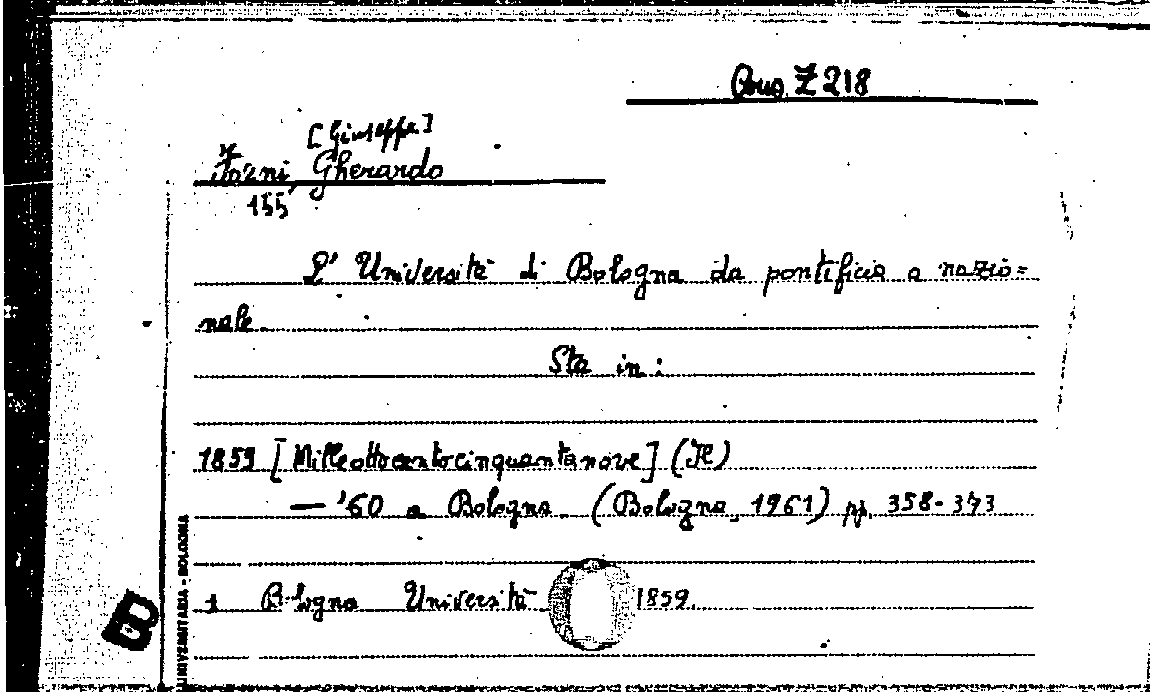 Cons. Z 218
[Giuseppe]
Forni, Gherardo
155
L' Università di Bologna da pontificia a nazio=
nale.
Sta in:
1859 [Milleottocentocinquantanove] (Il)
— '60 a Bologna. (Bologna, 1961) pp. 358-373
1 Bologna Università 1859.
B
UNIVERSITARIA - BOLOGNA